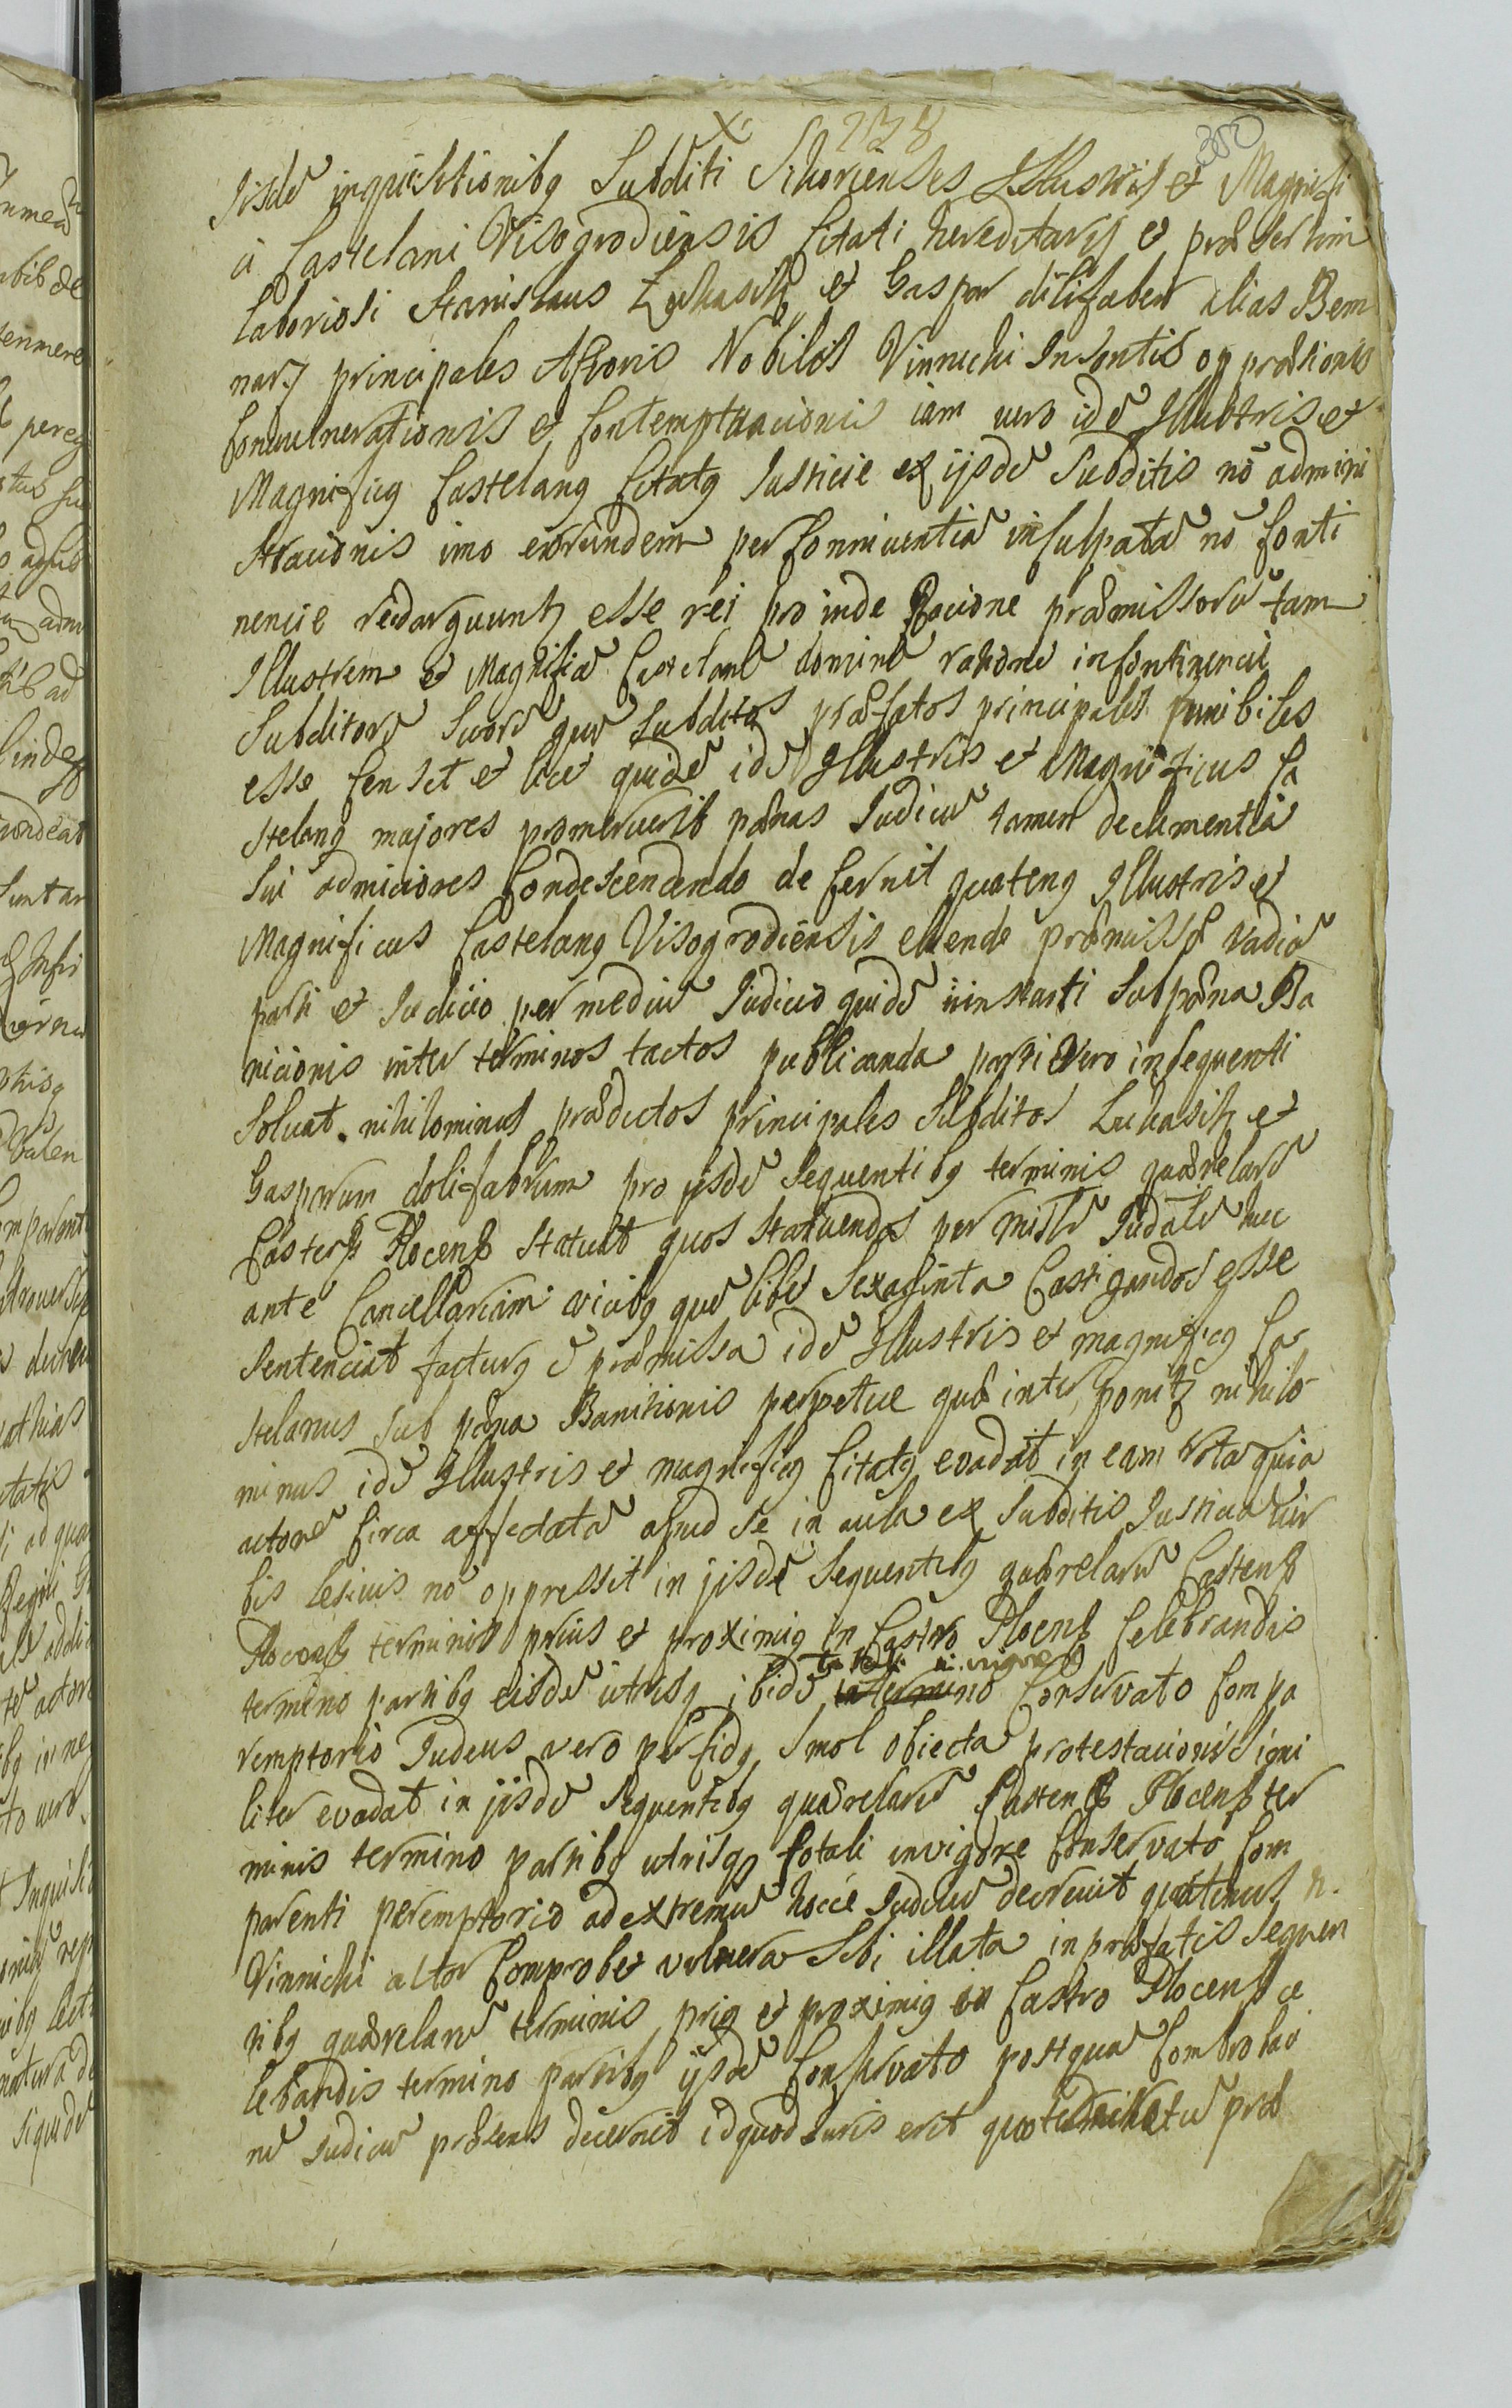 X 278 300
Iisdē inquisitionibq Subditi Sikorienses Illustris et Magnifi
ci Castelani Visogrodiensis Citati hereditarij et praesertim
laboriosi Stanislaus Lukasik et Gaspar dolifaber alias Bem
narz principales Actoris Nobilis Vinnicki Insontis oppraesionis
Convulnerationis et Contemptuacionis iam vero idē Illustris et
Magnificq Castelanq Citatq Iusticie ex ijsdē Subditis nō admini
stracionis imo eorundem per Conniventiā inculpatā nō Conti
nencie redarguuntz esse rei pro inde Racione praemissorū tam
Illustrem et Magnificū Castelanū dominū ratione incontinencie
Subditorū Suorū quā Subditos praefatos principales punibiles
esse Censet et licet quidē idē Illustris et Magnificus Ca
stelanq majores promeruerit paenas Iudiciū tamen de clementia
Sui admiciores Condescendendo decernit quatenq Illustris et
Magnificus Castelanq Visogrodiensis eluende praemissa vadia
parti et Iudicio per mediū Iudicio quidē iinstanti Sub paena Ba
nicionis inter terminos tactos publicanda parti Vero insequenti
Soluat. nihilominus praedictos principales Subditos Lukasik et
Gasparum dolifabrum pro ijsdē Sequentibq terminis quaerelarū
Castren Plocens Statuat quos Statuendos per Iudālē huc
ante Cancellariam vicibq que libet Sexaginta Castigandos esse
Sentenciat facturq ē praemissa idē Illustris et magnificq Ca
stelanus Sub paena Banitionis perpetue quae inter ponitz nihilo
minus idē Illustris et magnificq Citatq evadat in eam Rotā quia
actorē Circa affectatā apud Se in aula ex Subditis Iusticiā ver
bis lesivis nō oppressit in ijsdē Sequentibq quaerelarū Castrens
Plocens terminis prius et proximiq in Castro Plocens Celebrandis
in vigore
termino partibq eisdē utrisq ibidē Conservato Compa
remptorio Iudeus vero perfidq Smol obiecta protestacionis simi
liter evadat in ijsdē Sequentibq quaerelarū Castrens Plocens ter
minis termino partibq utrisq totali in vigore Conservato Com
parenti peremptorio ad extremū hocce Iudiciū decrevit quatenus n.
Vinnicki actor Comprobet vulnera Sibi illata in praefatis Sequen
tibq quaerelarū terminis priq et proximiq in Castro Plocens ce
lebrandis termino partibq ijsdē Conservato post quā Comprobatio
nē Iudiciū praesens decernet id quod Iuris erit prae